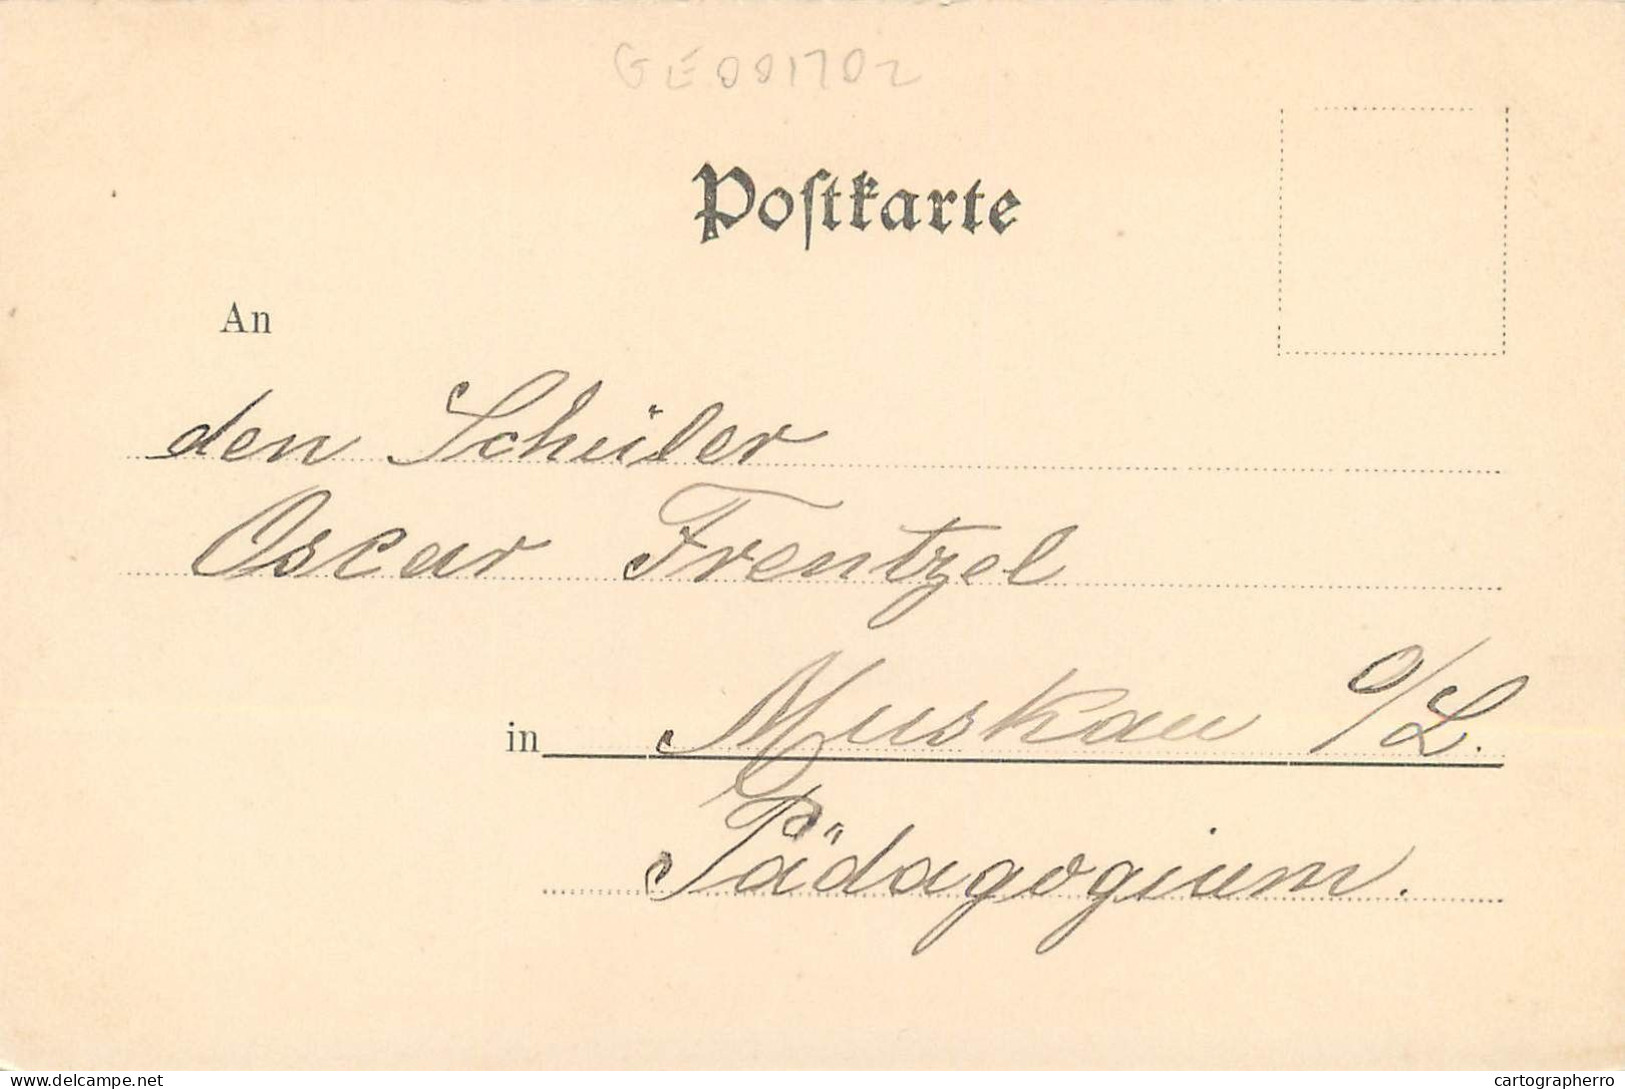 GE001702
Poſtkarte
An
den Schüler
Oscar Frentzel
in Muskau O/L.
Pädagogium.
delcampe.net
cartographerro